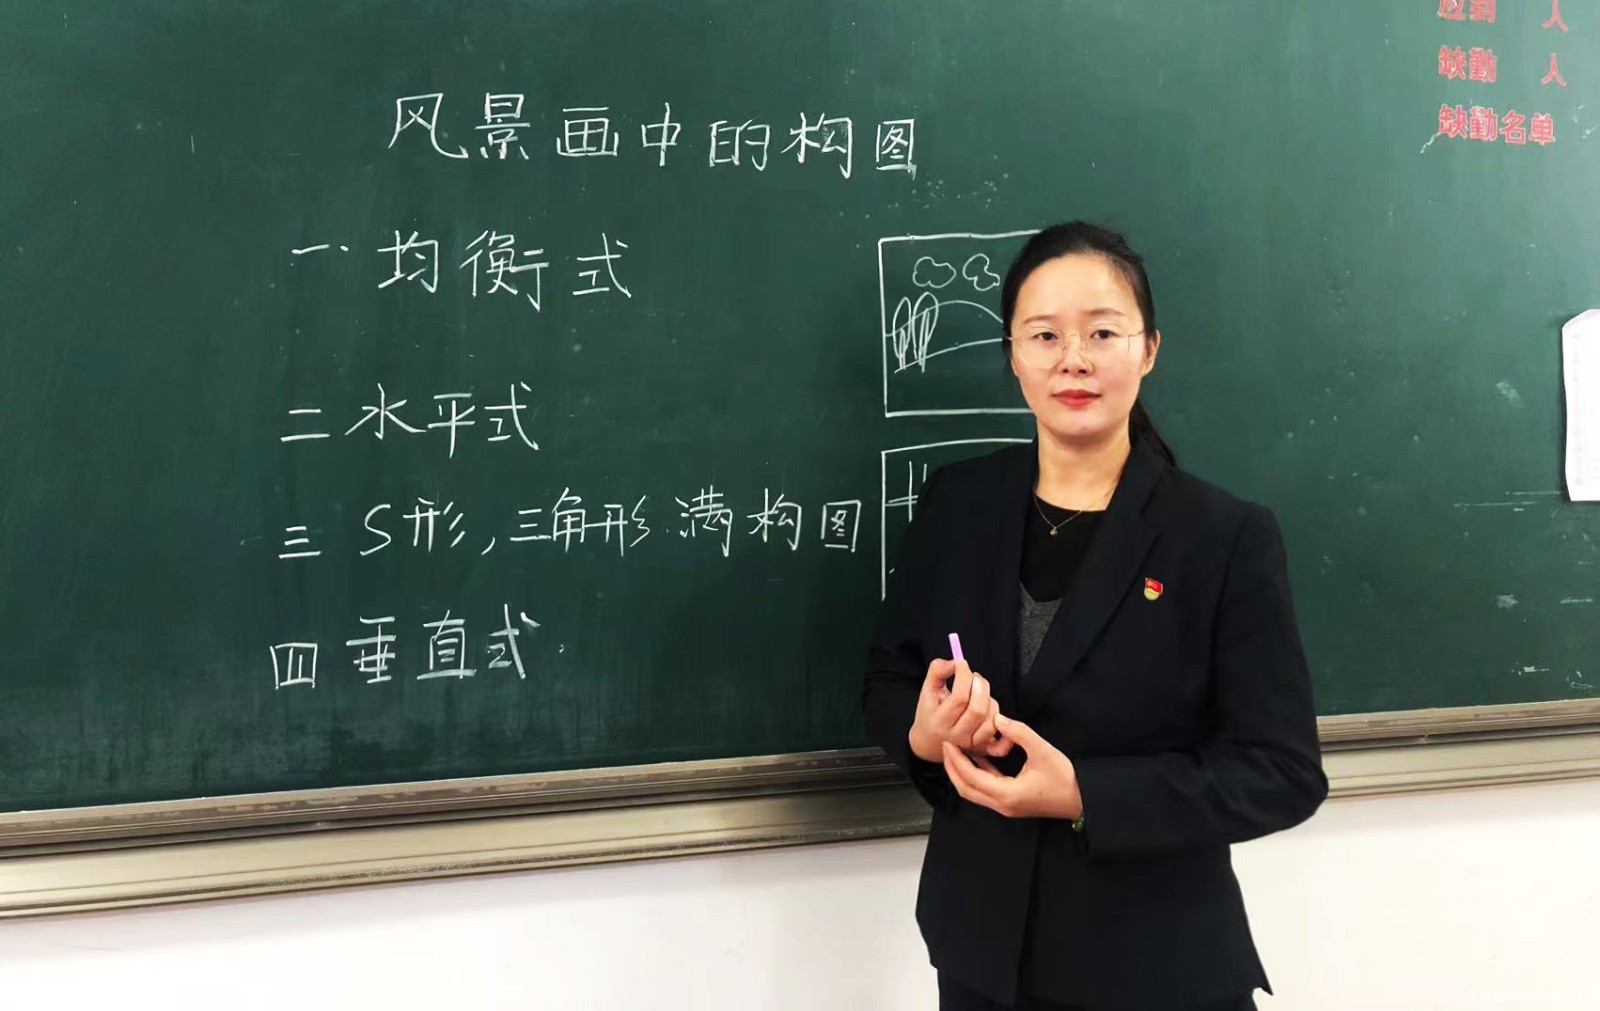 风景画中的构图
一.均衡式
二 水平式
三 S形,三角形 满构图
四 垂直式.
应到 人
缺勤 人
缺勤名单